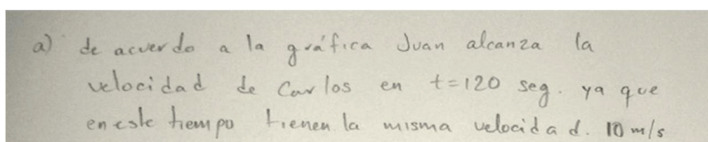 a) de acuerdo a la gráfica Juan alcanza la
velocidad de Carlos en t=120 seg. ya que
en este tiempo tienen la misma velocidad. 10 m/s